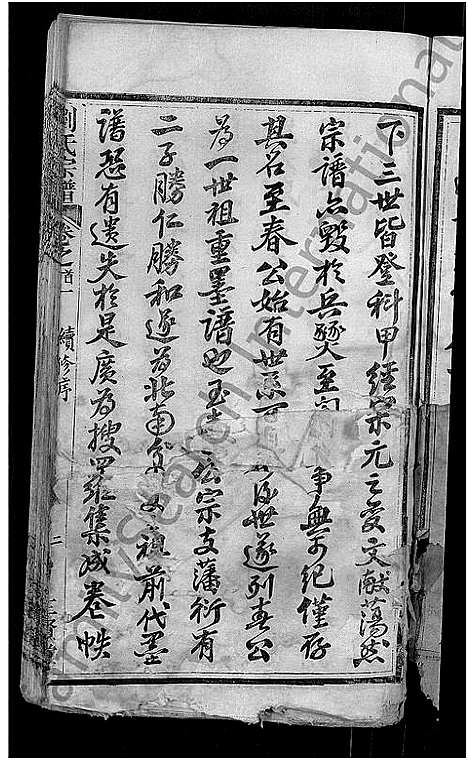 下三世皆登科甲經宋元之變文獻蕩然
宗譜亦毀於兵燹至 事無可紀僅存
其名至春公始有世系可 後世遂列春公
為一世祖重墨譜也至 公宗支藩衍有
二子勝仁勝和遂為北南分支祖前代墨
譜恐有遺失於是廣為搜羅集成卷帙
劉氏宗譜 卷之首一 續修序
FamilySearch International